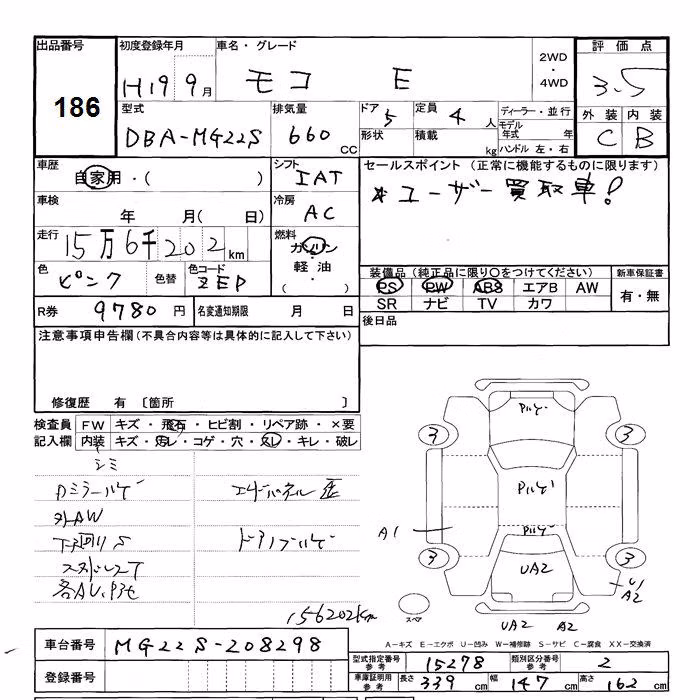 出品番号 初度登録年月 車名・グレード 2WD・4WD 評価点
186 H19 9月 モコ E 3.5
型式 排気量 ドア 5 定員 4人 ディーラー・並行 外装 内装
DBA-MG22S 660CC 形状 積載 kg モデル年式 年 ハンドル 左・右 C B
車歴 自家用・( ) シフト IAT セールスポイント (正常に機能するものに限ります)
*ユーザー買取車!
車検 年 月( 日) 冷房 AC
走行 15万6千202km 燃料 ガソリン・軽油・( )
色 ピンク 色替 色コード ZEP
装備品 (純正品に限り○をつけてください) 新車保証書
PS PW ABS エアB AW 有・無
SR ナビ TV カワ
R券 9780円 名変通知期限 月 日 後日品
注意事項申告欄(不具合内容等は具体的に記入して下さい)
修復歴 有 〔箇所 〕
検査員 FW キズ・飛石・ヒビ割・リペア跡・×要
記入欄 内装 キズ・汚レ・コゲ・穴・スレ・キレ・破レ
シミ
Dミラーハゲ
外AW
下回りS
スタドレスT
各AU、P3セ
ドアノブハゲ
156202km
Pハゲ
3 3
Pハゲ
Pハゲ
A1
3 3
UA2
U1
A2
スペア
UA2 A2
車台番号 MG22S-208298
A-キズ E-エクボ U-凹み W-補修跡 S-サビ C-腐食 XX-交換済
登録番号
型式指定番号 参考 15278 類別区分番号 参考 2
車庫証明用 参考 長さ 339cm 幅 147cm 高さ 162cm